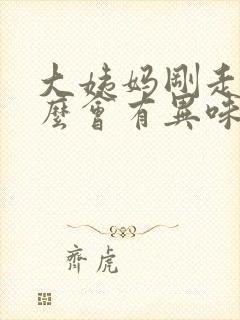 大姨妈刚走
麽會有異味
齊虎